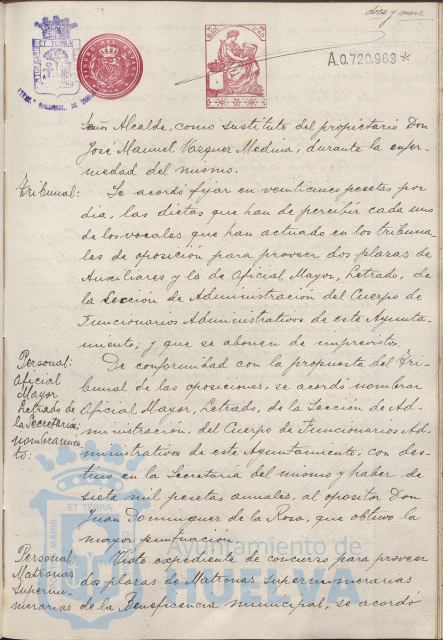 doce y nueve
A.0.720.963*
Señor Alcalde, como sustituto del propietario Don
José Manuel Vazquez Medina, durante la enfer-
medad del mismo.
Tribunal:
Se acordó fijar en veinticinco pesetas por
día, las dietas que han de percibir cada uno
de los vocales que han actuado en los tribuna-
les de oposición para proveer dos plazas de
Auxiliares y la de Oficial Mayor, Letrado, de
la Sección de Administración del Cuerpo de
Funcionarios Administrativos de este Ayunta-
miento; y que se abonen de imprevistos.
Personal:
Oficial
Mayor
Letrado de
la Secretaría:
nombramien-
to:
De conformidad con la propuesta del Tri-
bunal de las oposiciones, se acordó nombrar
Oficial Mayor, Letrado, de la Sección de Ad-
ministración, del Cuerpo de Funcionarios Ad-
ministrativos de este Ayuntamiento, con des-
tino en la Secretaría del mismo y haber de
siete mil pesetas anuales, al opositor Don
Juan Dominguez de la Rosa, que obtuvo la
mayor puntuación.
Personal:
Matronas
Supernu-
merarias
Visto expediente de concurso para proveer
dos plazas de Matronas Supernumerarias
de la Beneficencia municipal, se acordó
Ayuntamiento de
HUELVA